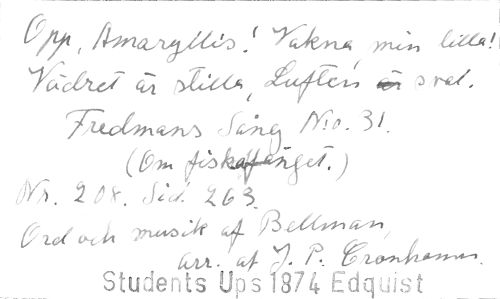 Opp, Amaryllis! Vakna min lilla!
Vädret är stilla, Luften är sval.
Fredmans Sång No. 31.
(Om fiskafänget.)
Nr. 208. Sid. 263.
Ord och musik af Bellman,
arr. af J. P. Cronhamn.
Students Ups 1874 Edquist